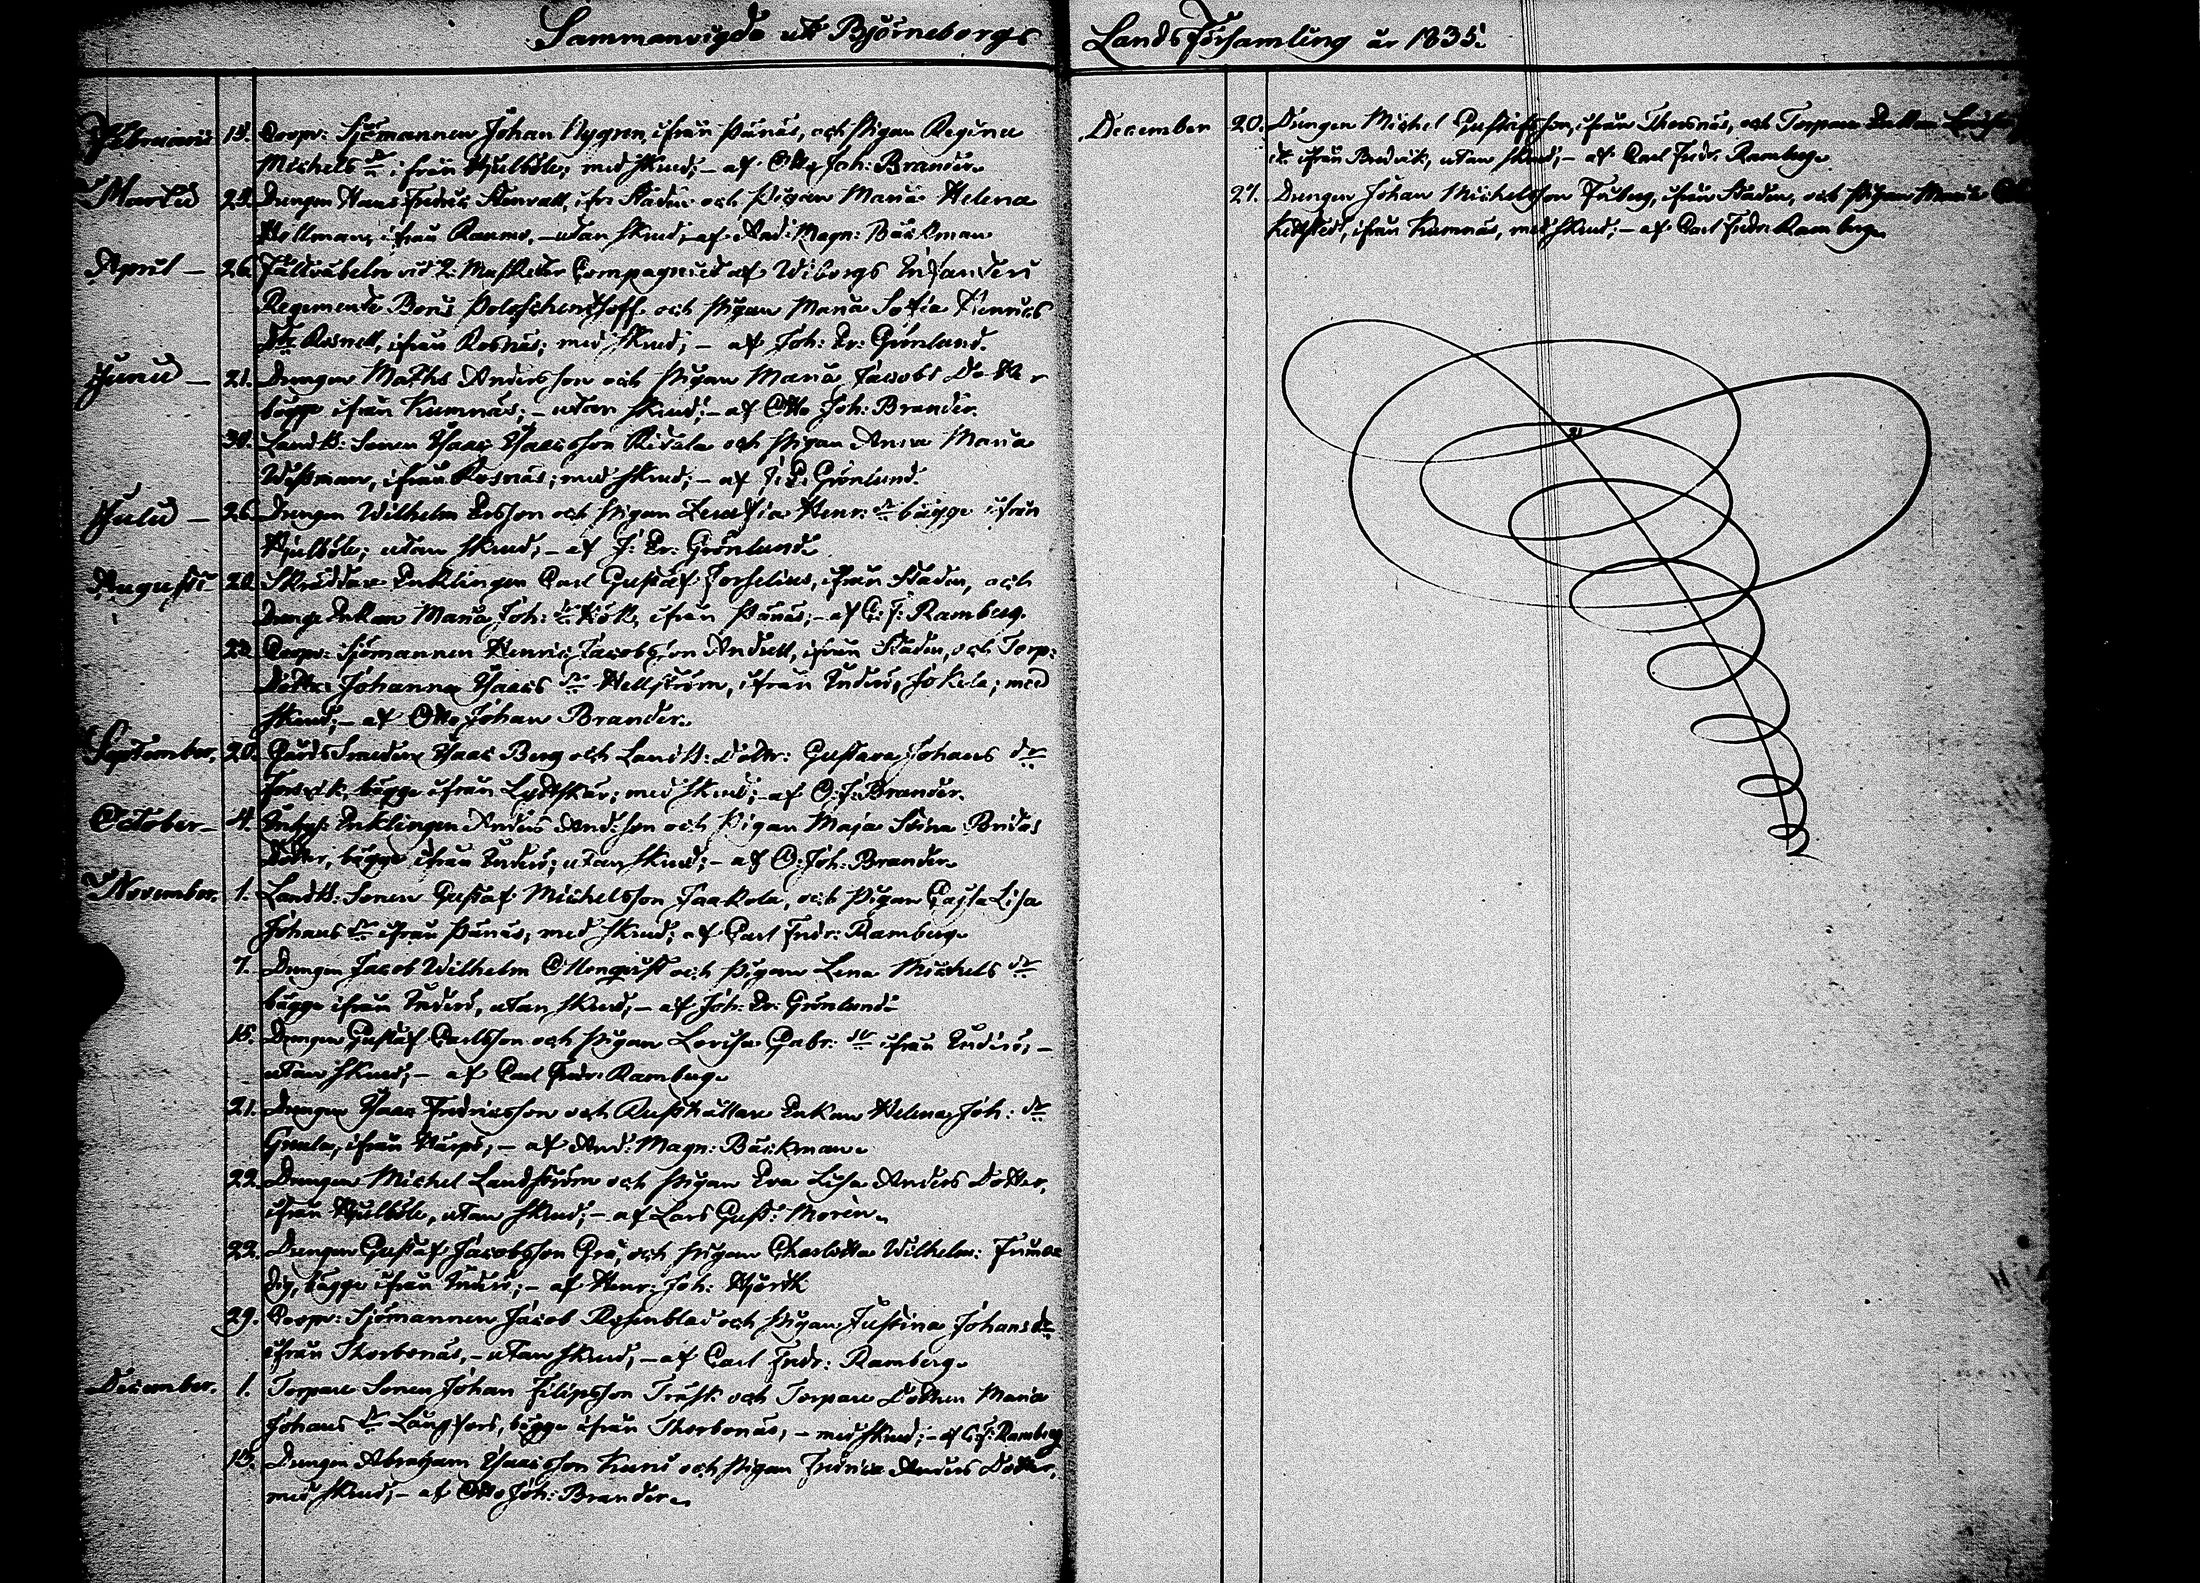 Sammanvigde uti Björneborgs Landsförsamling år 1835.
Februarii 15. Coopv: Sjömannen Johan Nygren, ifrån Pänäs, och Pigan Regina
Michels dr ifrån Hjulböle; med Skrud; – af Otto Joh: Brander.
Martii 29. Drengen Hans Fredric Stenvall, ifr. Staden och Pigan Maria Helena
Hellman, ifrån Raumo, – utan Skrud; – af And: Magn: Bäckman
April – 26. Fältväbeln vid 2: Compagniet af Wiborgs Infanterie
Regemente Boris och Pigan Maria Sofia Henrics
dr Rosnell, ifrån Rosnäs; med Skrud; – af Joh: Er: Grönlund.
Junii – 21. Drengen Maths Andersson och Pigan Maria Jacobs Dotter
bägge ifrån Kumnäs; – utan Skrud; – af Otto Joh: Brander.
30. Landb: Sonen Isaac Isaacsson Ridala och Pigan Anna Maria
Wissman, ifrån Rosnäs; med Skrud; – af J: E: Grönlund.
Julii – 26. Drengen Wilhelm Ersson och Pigan Henr: dr bägge ifrån
Hjulböle; utan Skrud; – af J: Er: Grönlund.
Augusti 20. Skräddare Enklingen Carl Gustaf Forselius, ifrån Staden, och
Drenge Enkan Maria Joh: dr Kök, ifrån Pänäs; – af C: F: Ramberg.
23. Coopv: Sjömannen Henric Jacobsson Andell, ifrån Staden, och Torp:
Dottr: Johanna Isaacs dr Hellström, ifrån Inderö, Jokela; med
Skrud; – af Otto Johan Brander.
September. 20. Gårds Smeden Isaac Berg och Landb: Dottr: Gustava Johans dr
bägge ifrån Lyttskär; med Skrud; – af O: J: Brander.
October – 4. Inhys: Enklingen Anders Andsson och Pigan Maja Stina
Dotter, bägge ifrån Inderö; utan Skrud; – af O: Joh: Brander.
November. 1. Landb: Sonen Gustaf Michelsson Jaakola, och Pigan Cajsa Lisa
Johans dr ifrån Pänäs; med Skrud; af Carl Fredr: Ramberg.
7. Drengen Jacob Wilhelm Ottenqvist och Pigan Lena Michels dr
bägge ifrån Inderö, utan Skrud; – af Joh: Er: Grönlund.
15. Drengen Gustaf Carlsson och Pigan Lovisa Gabr: dr ifrån Inderö; –
utan Skrud; – af Carl Fredr: Ramberg.
21. Drengen Isaac Fredricsson och Rusthållare Enkan Helena Joh: dr
ifrån Härpö; – af And: Magn: Bäckman.
22. Drengen Michel Landström och Pigan Eva Lisa Anders Dotter,
ifrån Hjulböle, utan Skrud; – af Lars Gust: Morén.
22. Drengen Gustaf Jacobsson Grå, och Pigan Charlotta Wilhelm: Frimo
dig, bägge ifrån Inderö; – af Henr: Joh: Hjorth
29. Coopv: Sjömannen Jacob Rosenblad och Pigan Justina Johans dr
ifrån Thorbonäs, – utan Skrud; – af Carl Fredr: Ramberg.
December. 1. Torpare Sonen Johan Filipsson Träsk och Torpare Dottren Maria
Johans dr Långfors, bägge ifrån Thorbonäs; – med Skrud; – af C: F: Ramberg
13. Drengen Abraham Isaacsson och Pigan Fredrica Anders Dotter,
med Skrud; – af Otto Joh: Brander.
December 20. Drengen Michel Gustafsson, ifrån Thorsnäs, och Torpare
dr ifrån utan Skrud; – af Carl Fredr: Ramberg.
27. Drengen Johan Michelsson Friberg, ifrån Staden, och Pigan Maria
ifrån Kumnäs, med Skrud; – af Carl Fredr: Ramberg.